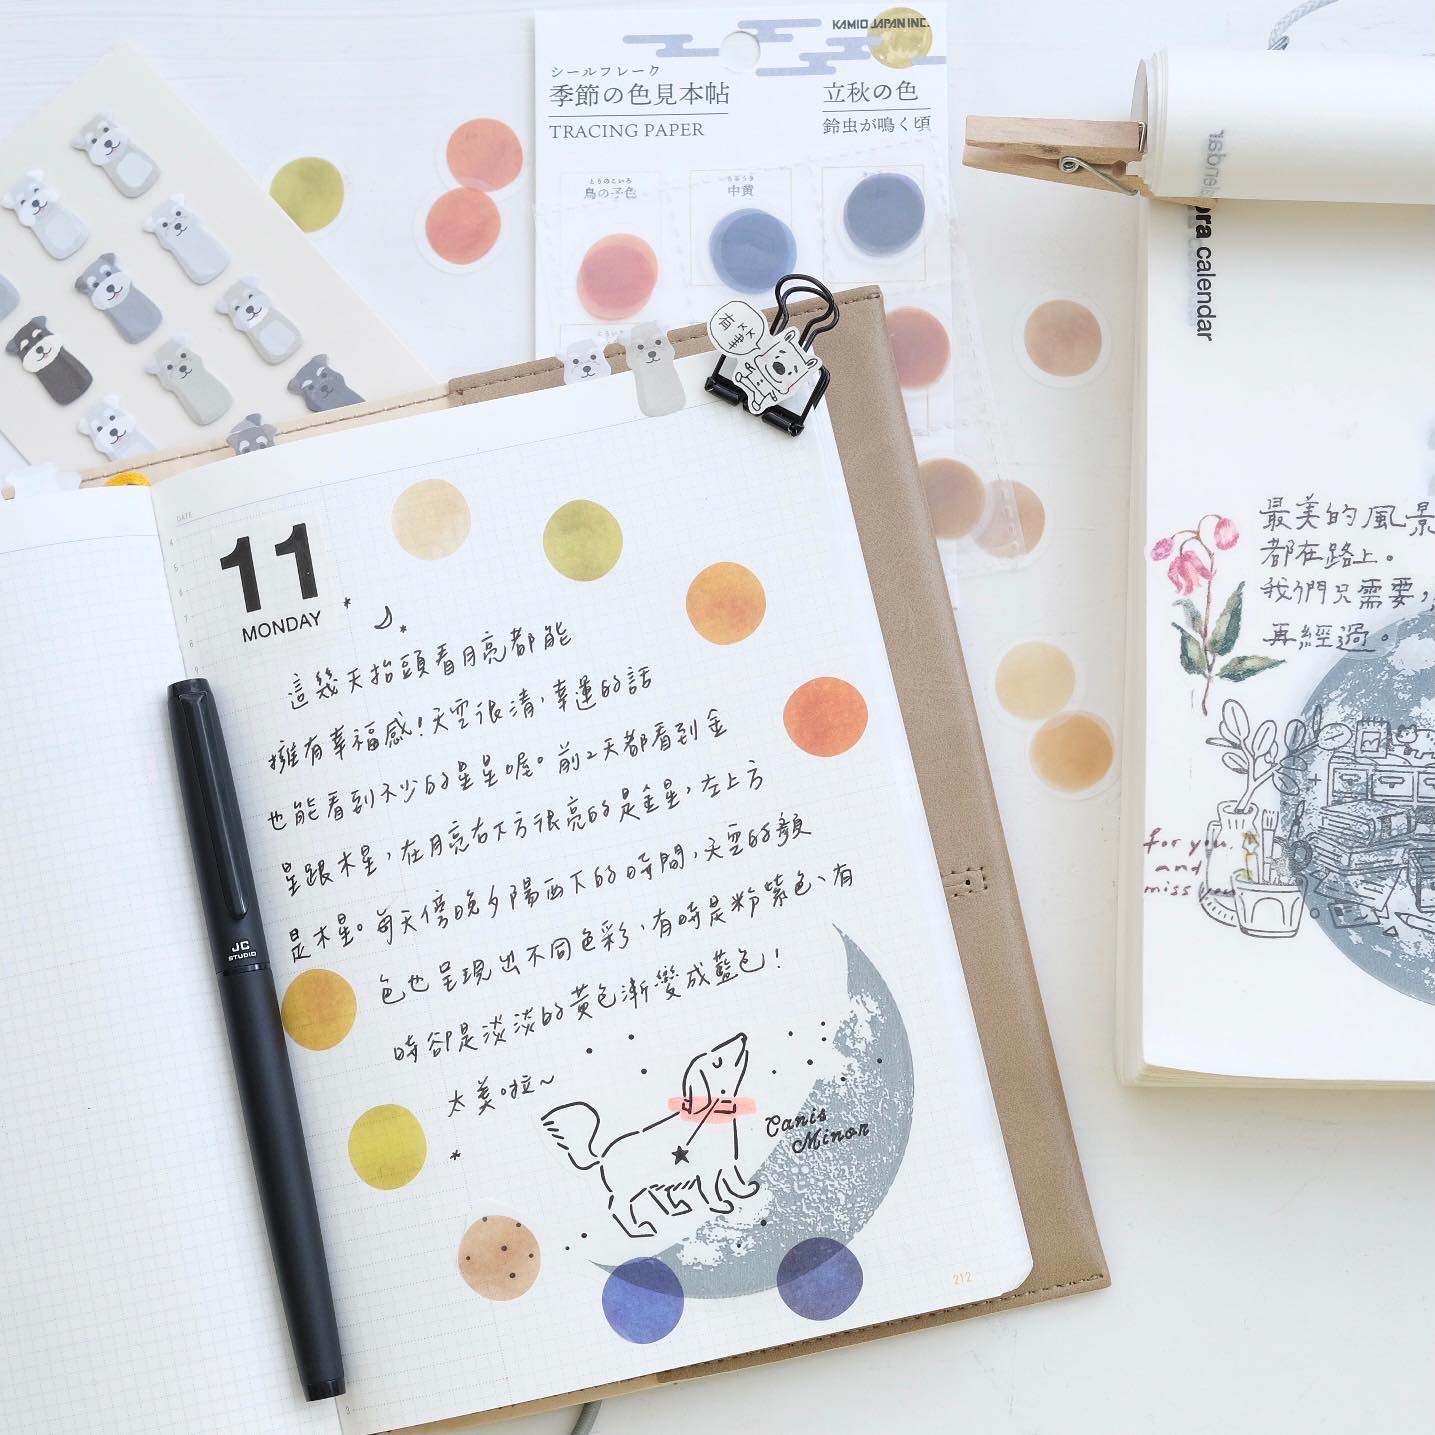 KAMIO JAPAN INC.
シールフレーク
季節の色見本帖
TRACING PAPER
立秋の色
鈴虫が鳴く頃
とりのこいろ
鳥の子色
中黄
有美美
DATE
11
MONDAY
這幾天抬頭看月亮都能
擁有幸福感！天空很清，幸運的話
也能看到不少的星星喔。前2天都看到金
星跟木星，在月亮右下方很亮的是金星，左上方
是木星。每天傍晚夕陽西下的時間，天空的顏
色也呈現出不同色彩，有時是粉紫色、有
時卻是淡淡的黃色漸變成藍色！
太美啦~
Canis
Minor
212
JC
STUDIO
calendar
最美的風景
都在路上。
我們只需要，
再經過。
for you
and
miss you.